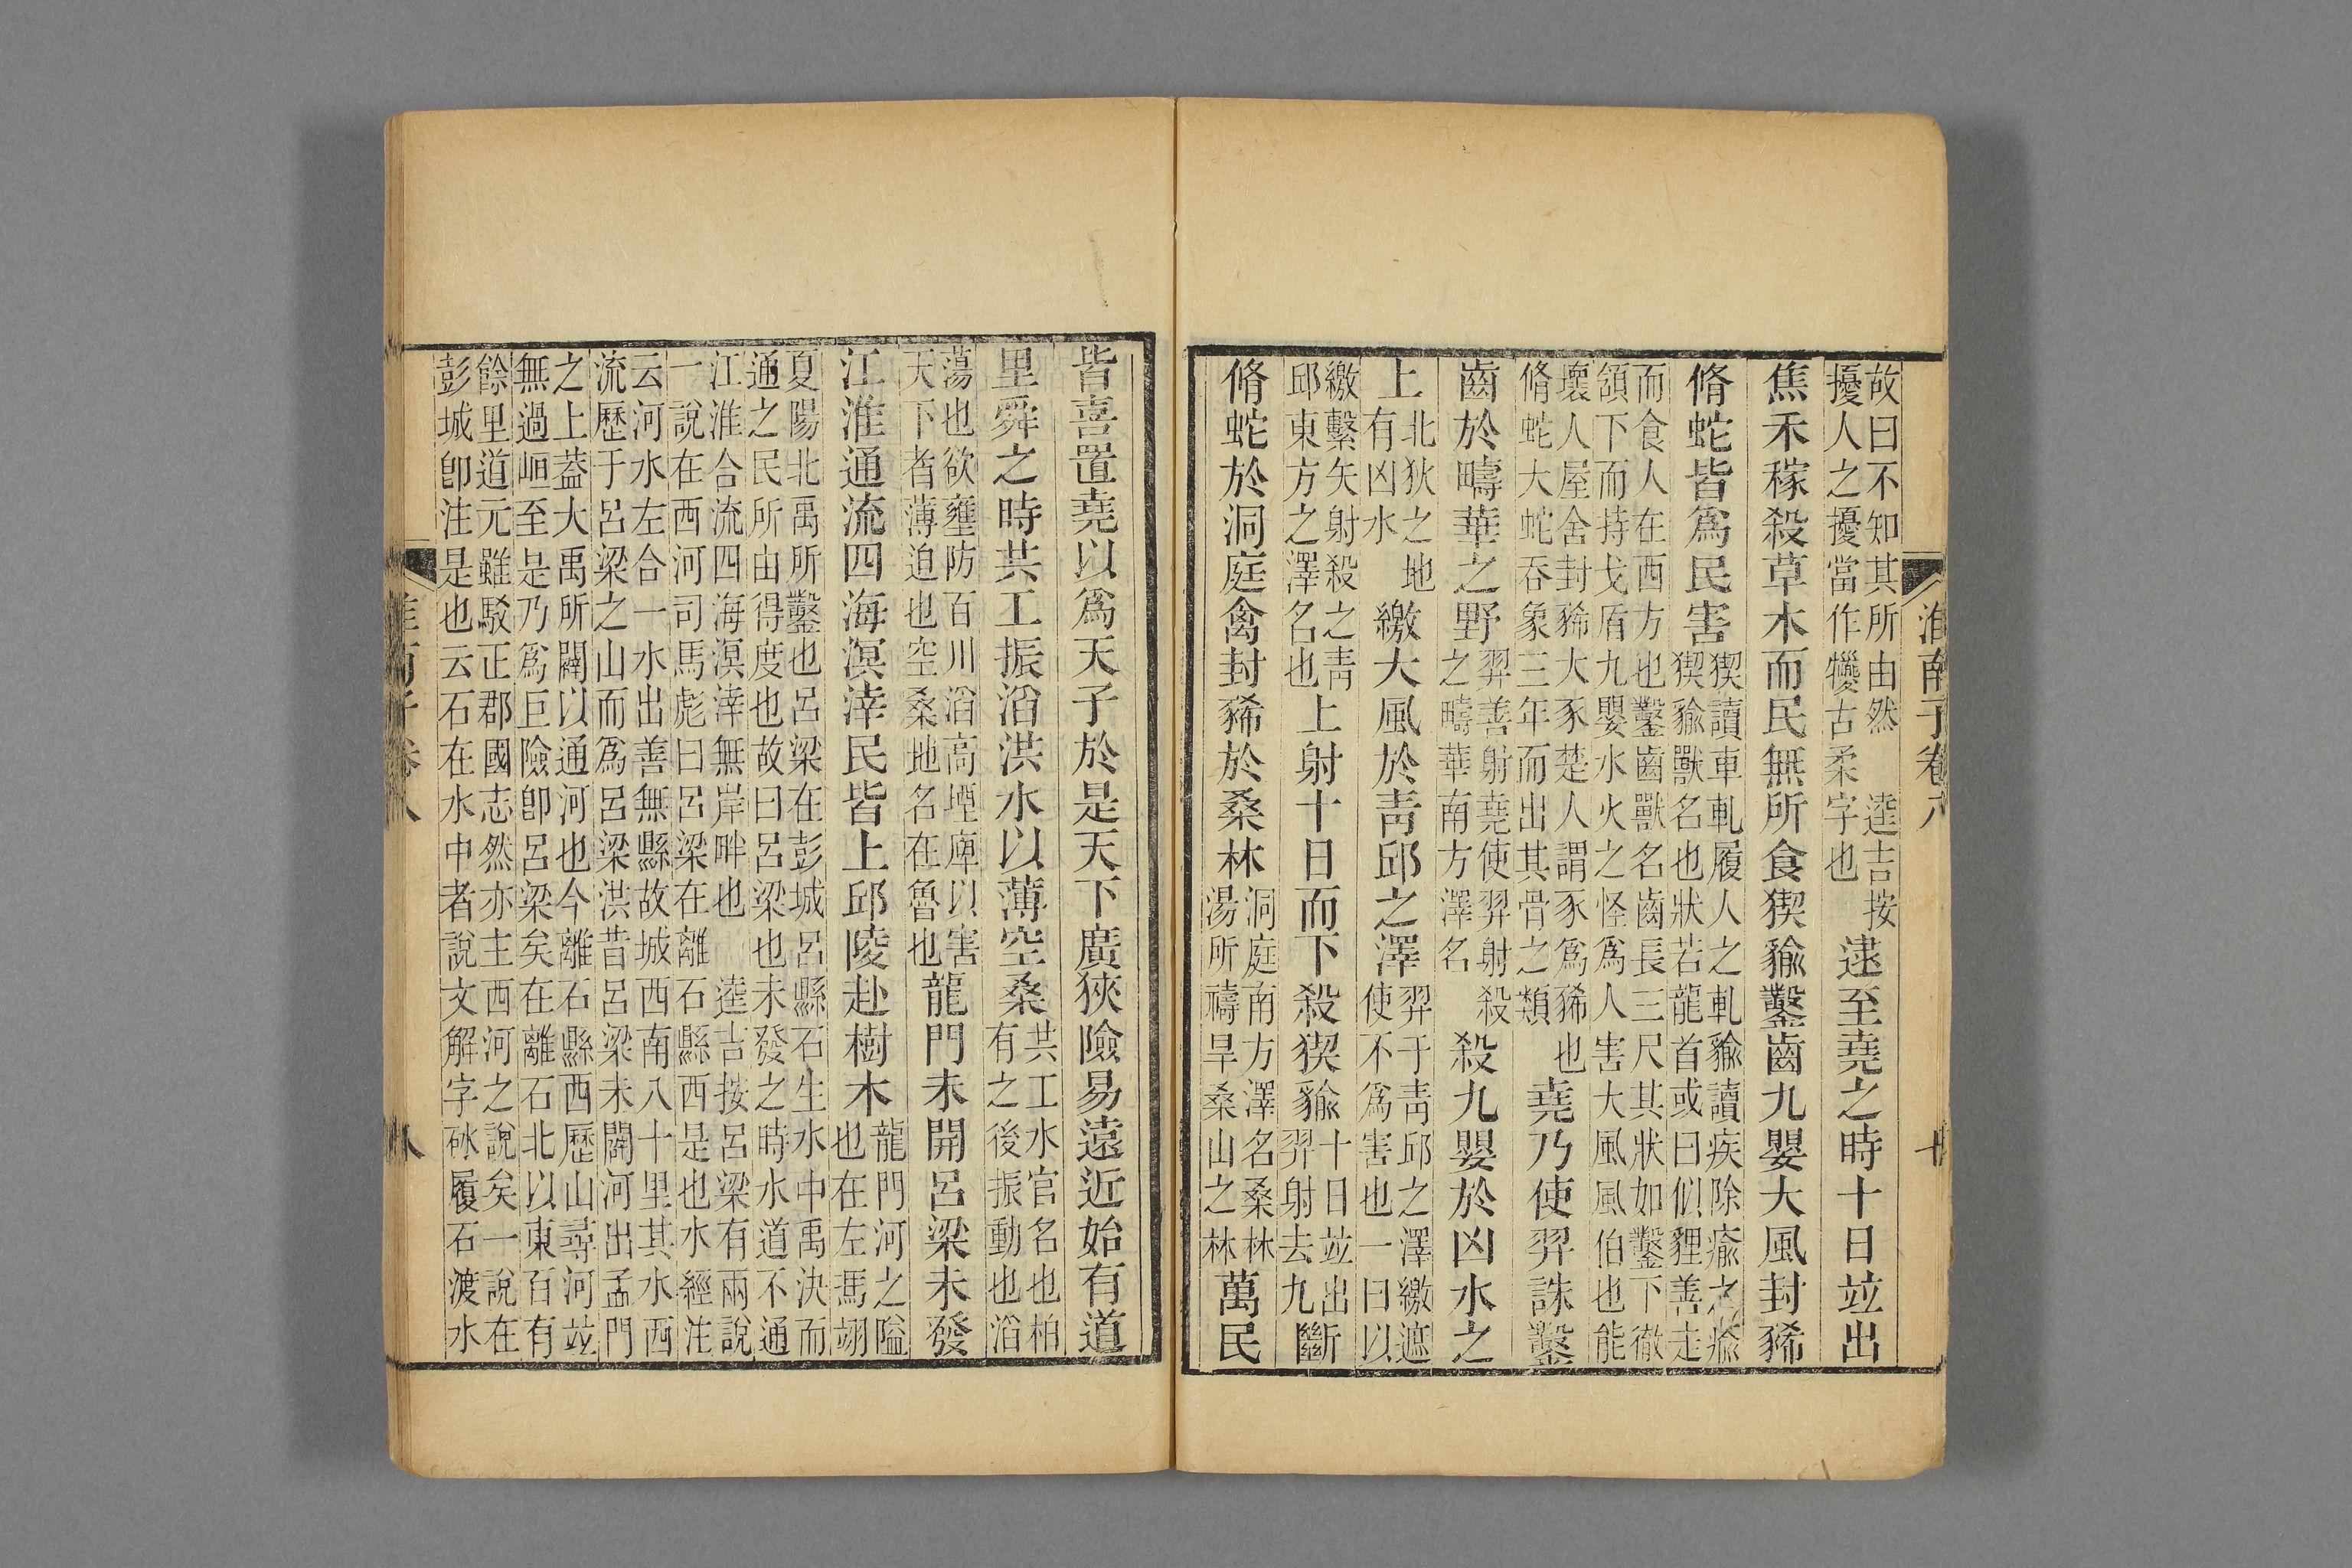 淮南子卷八 十
故曰不知其所由然 逵吉按擾人之擾當作犪古柔字也逮至堯之時十日竝出
焦禾稼殺草木而民無所食猰貐鑿齒九嬰大風封豨
脩蛇皆爲民害猰讀車軋履人之軋貐讀疾除瘉之瘉猰貐獸名也狀若龍首或曰似貍善走
而食人在西方也鑿齒獸名齒長三尺其狀如鑿下徹頷下而持戈盾九嬰水火之怪爲人害大風風伯也能
壞人屋舍封豨大豕楚人謂豕爲豨也脩蛇大蛇吞象三年而出其骨之類堯乃使羿誅鑿
齒於疇華之野羿善射堯使羿射殺之疇華南方澤名殺九嬰於凶水之
上北狄之地有凶水繳大風於青邱之澤羿于青邱之澤繳遮使不爲害也一曰以
繳繫矢射殺之青邱東方之澤名也上射十日而下殺猰貐十日竝出羿射去九斷
脩蛇於洞庭禽封豨於桑林洞庭南方澤名桑林湯所禱旱桑山之林萬民
皆喜置堯以爲天子於是天下廣狹險易遠近始有道
里舜之時共工振滔洪水以薄空桑共工水官名也柏有之後振動也滔
蕩也欲壅防百川滔高堙庳以害天下者薄迫也空桑地名在魯也龍門未開呂梁未發
江淮通流四海溟涬民皆上邱陵赴樹木龍門河之隘也在左馮翊
夏陽北禹所鑿也呂梁在彭城呂縣石生水中禹決而通之民所由得度也故曰呂梁也未發之時水道不通
江淮合流四海溟涬無岸畔也 逵吉按呂梁有兩說一說在西河司馬彪曰呂梁在離石縣西是也水經注
云河水左合一水出善無縣故城西南八十里其水西流歷于呂梁之山而爲呂梁洪昔呂梁未闢河出孟門
之上蓋大禹所闢以通河也今離石縣西歷山尋河竝無過峘至是乃爲巨險卽呂梁矣在離石北以東百有
餘里道元雖駁正郡國志然亦主西河之說矣一說在彭城卽注是也云石在水中者說文解字砅履石渡水